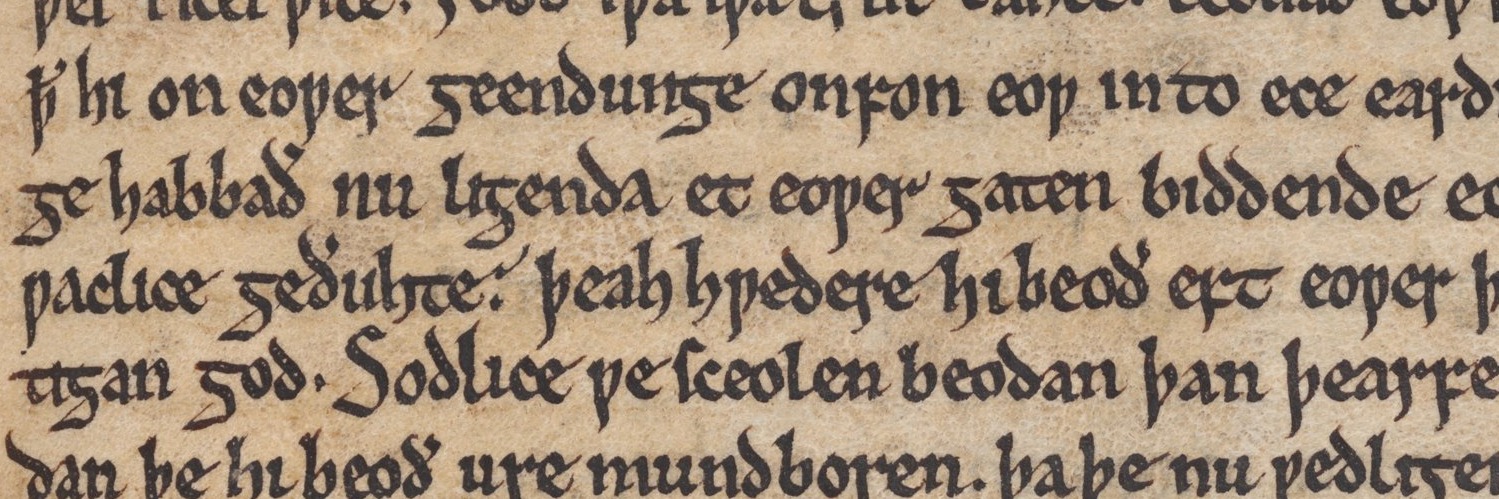 ꝥ hi on eoƿer geendunge onfon eoƿ into ece eard
ge habbað nu ligenda et eoƿer gaten biddende eo
ƿaclice geðuhte. þeah hƿedere hi beoð eft eoƿer þ
tigan god. Sodlice ƿe sceolen beodan þan þearfe
dan þe hi beoð ure mundboren. þa þe nu ƿedligen